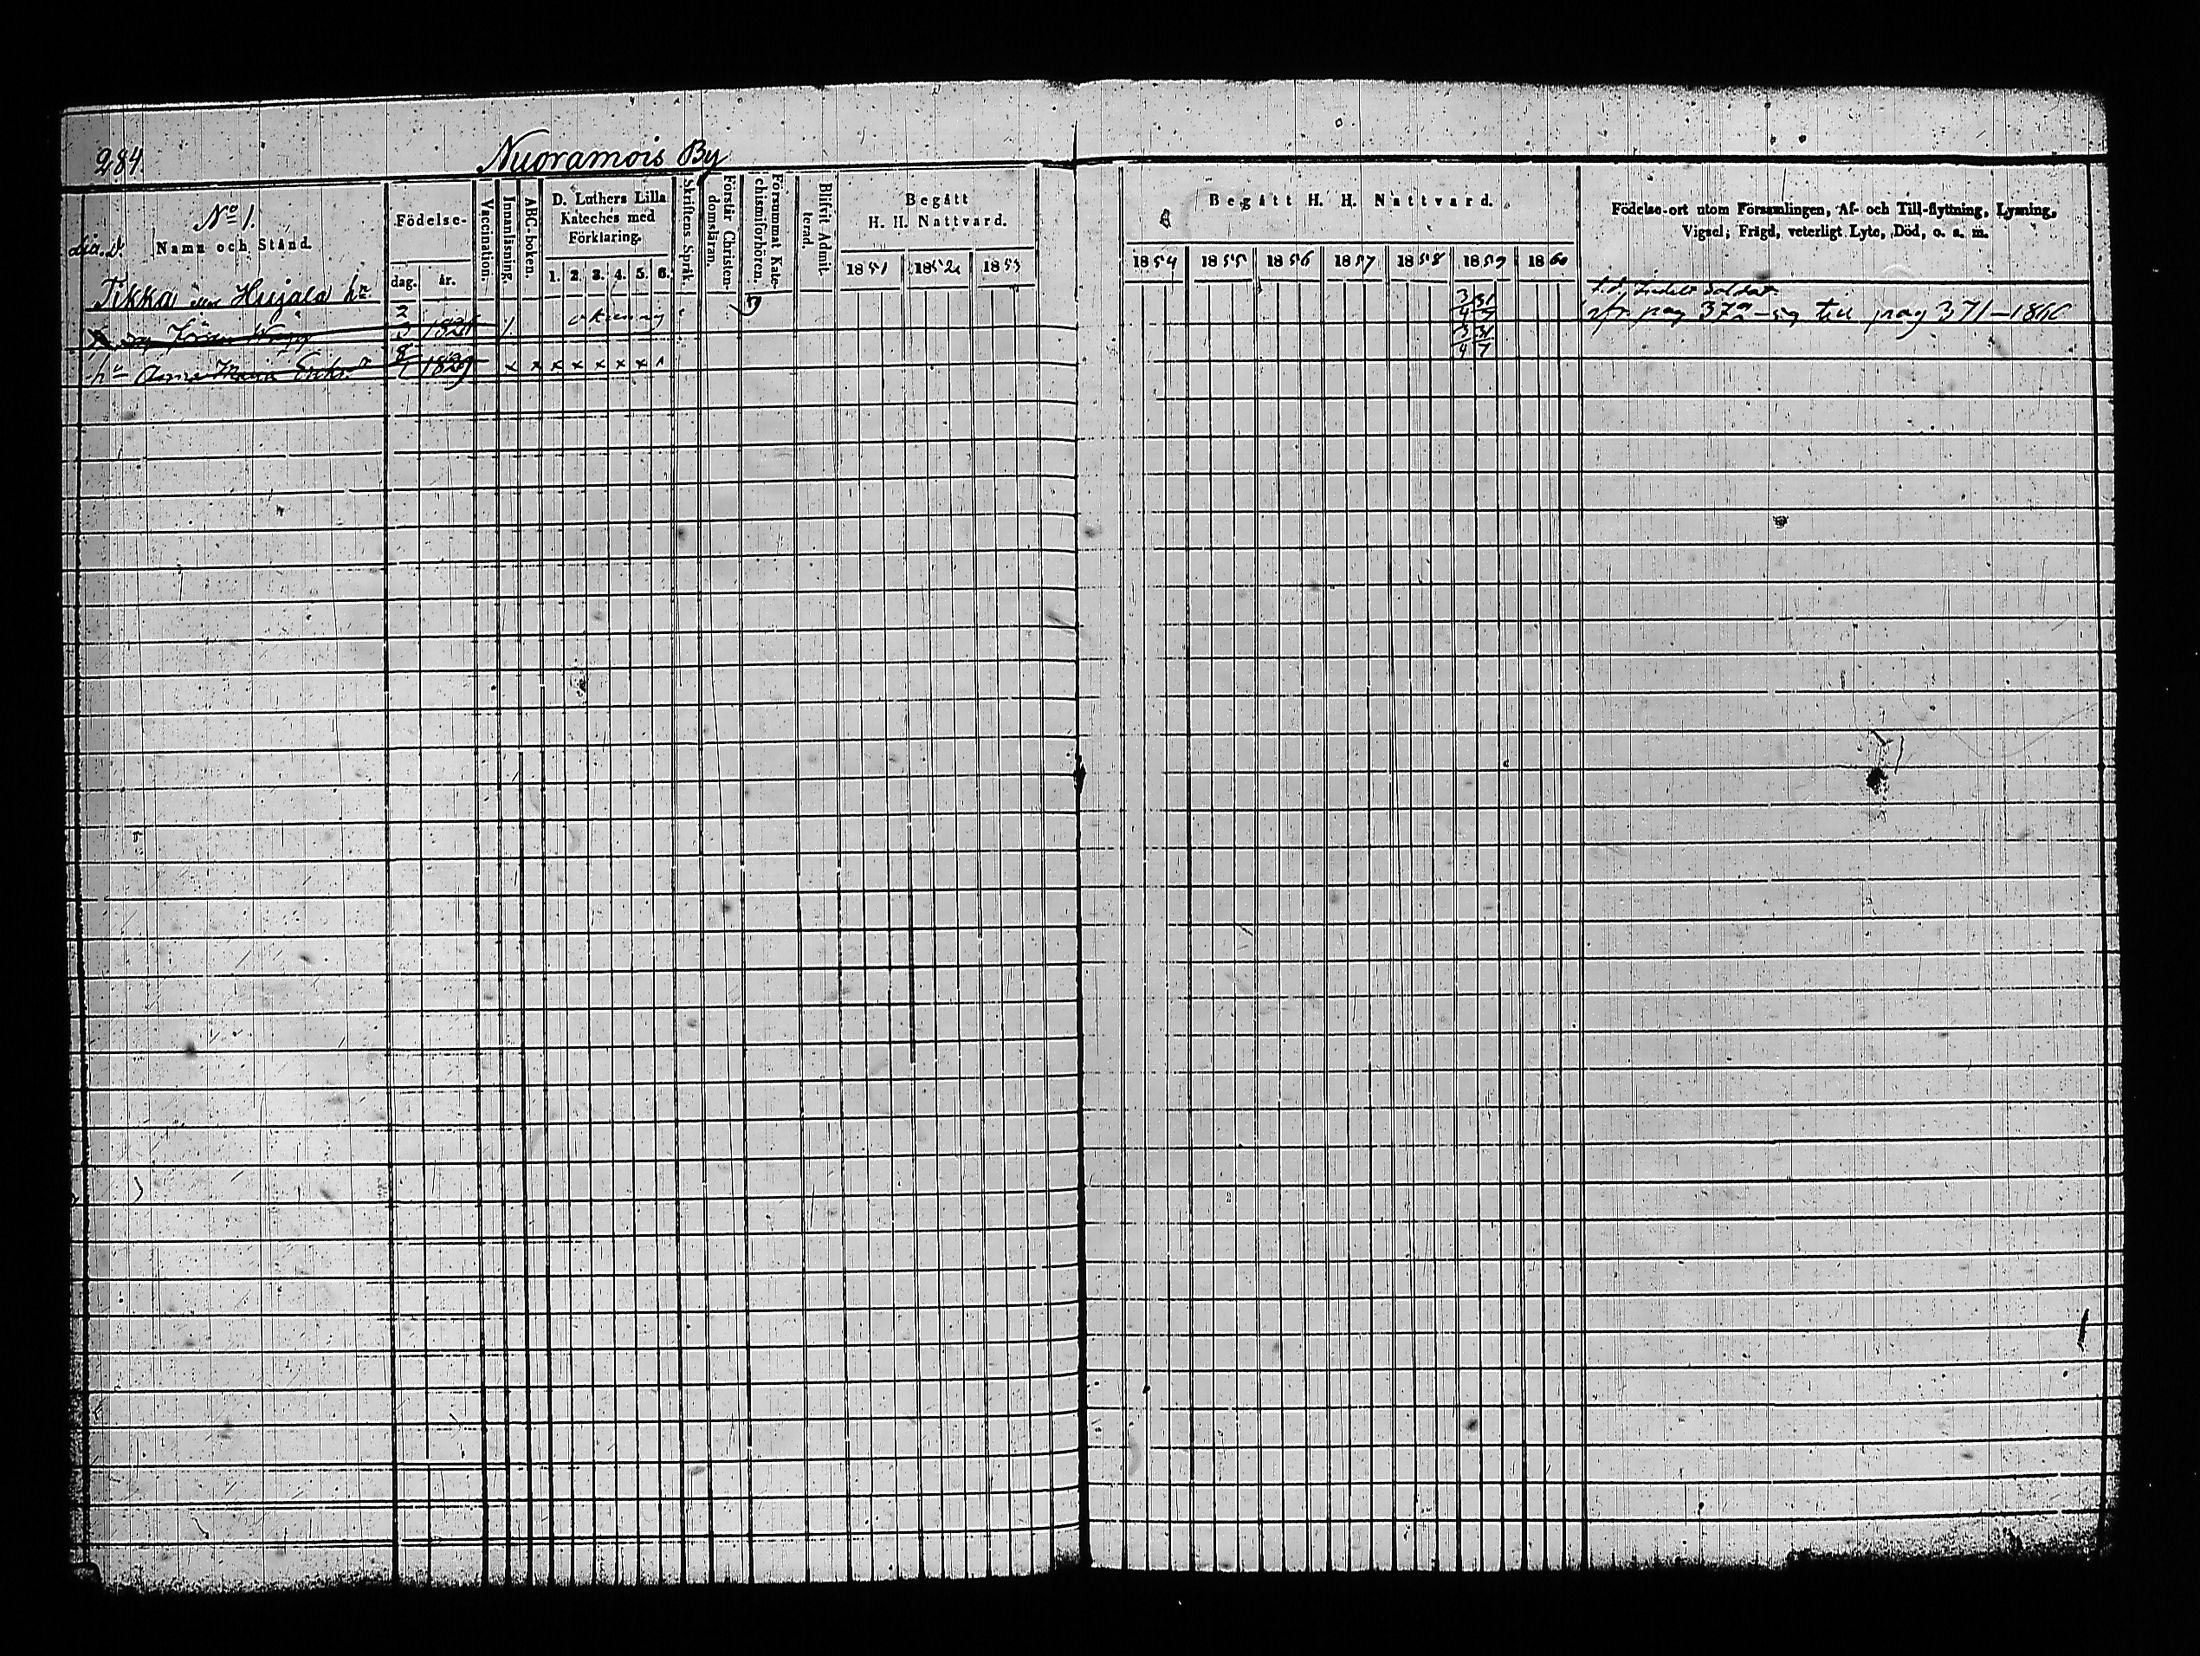 284
Nuoramois By
No 1.
Namn och Stånd.
Födelse-
dag.
år.
Vaccination.
Innanläsning.
ABC-boken.
D. Luthers Lilla
Kateches med
Förklaring.
1. 2. 3. 4. 5. 6.
Skriftens Språk.
Förstår Christen-
domsläran.
Försummat Kate-
chismiförhören.
Blifvit Admit-
terad.
Begått
H. H. Nattvard.
1851 1852 1853
Begått H. H. Nattvard.
1854 1855 1856 1857 1858 1859 1860
Födelse-ort utom Församlingen, Af- och Till-flyttning, Lysning,
Vigsel; Frägd, veterligt Lyte, Död, o. s. m.
Tikka Hujala
2
3 1821
okunnig
3 31
4 7
soldat
pag 372 till pag 371-1860
8
1829 x x x x x x x
3 31
4 7